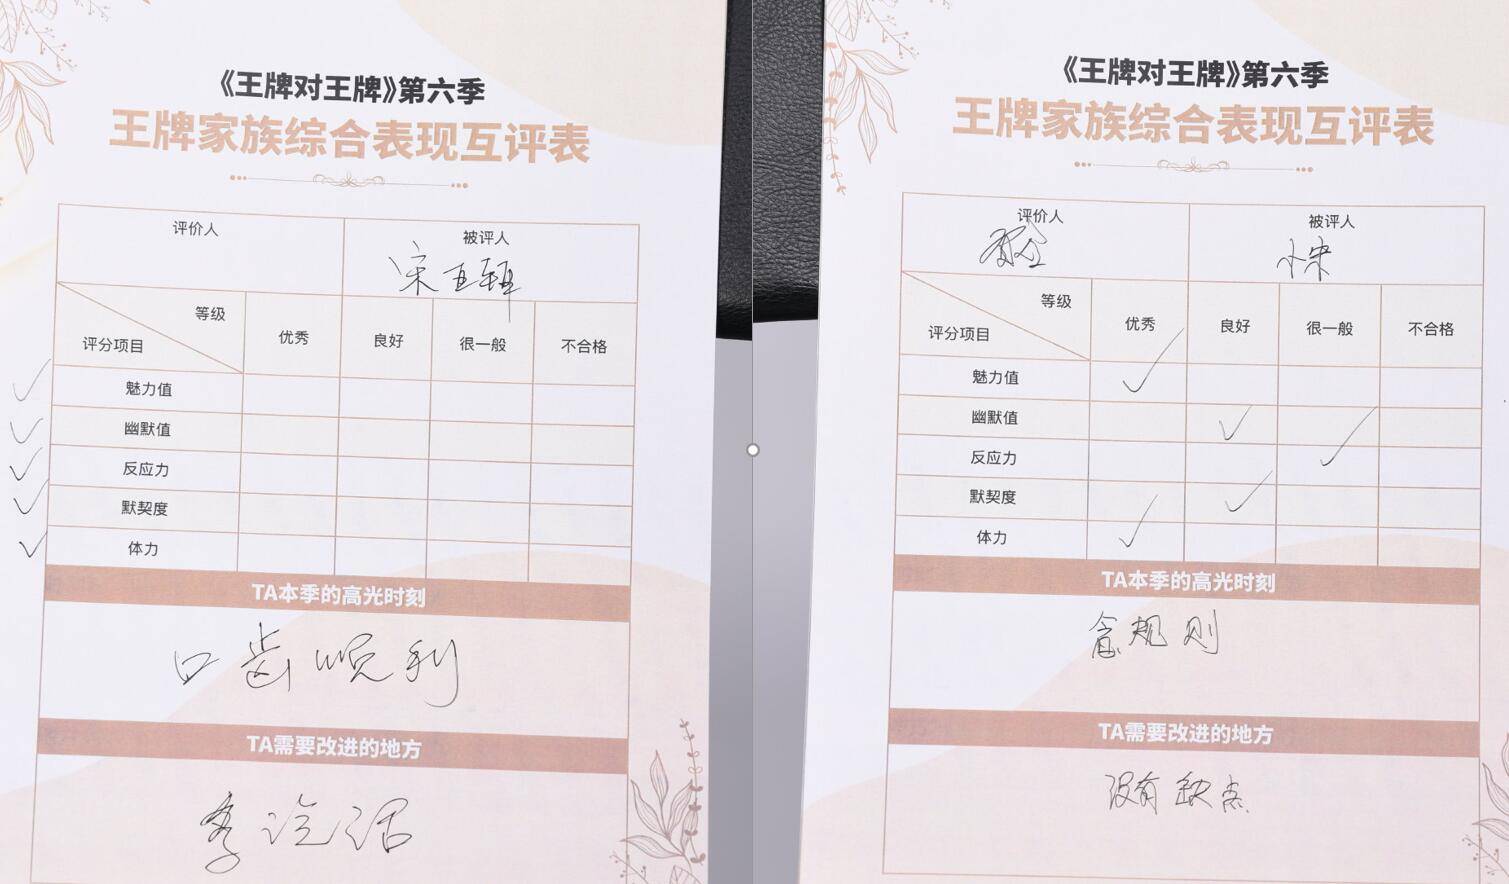 《王牌对王牌》第六季
王牌家族综合表现互评表
评价人
被评人
宋
等级
评分项目
优秀
良好
很一般
不合格
魅力值
幽默值
反应力
默契度
体力
TA本季的高光时刻
口齿顺利
TA需要改进的地方
《王牌对王牌》第六季
王牌家族综合表现互评表
评价人
被评人
小宋
等级
评分项目
优秀
良好
很一般
不合格
魅力值
幽默值
反应力
默契度
体力
TA本季的高光时刻
念规则
TA需要改进的地方
没有缺点